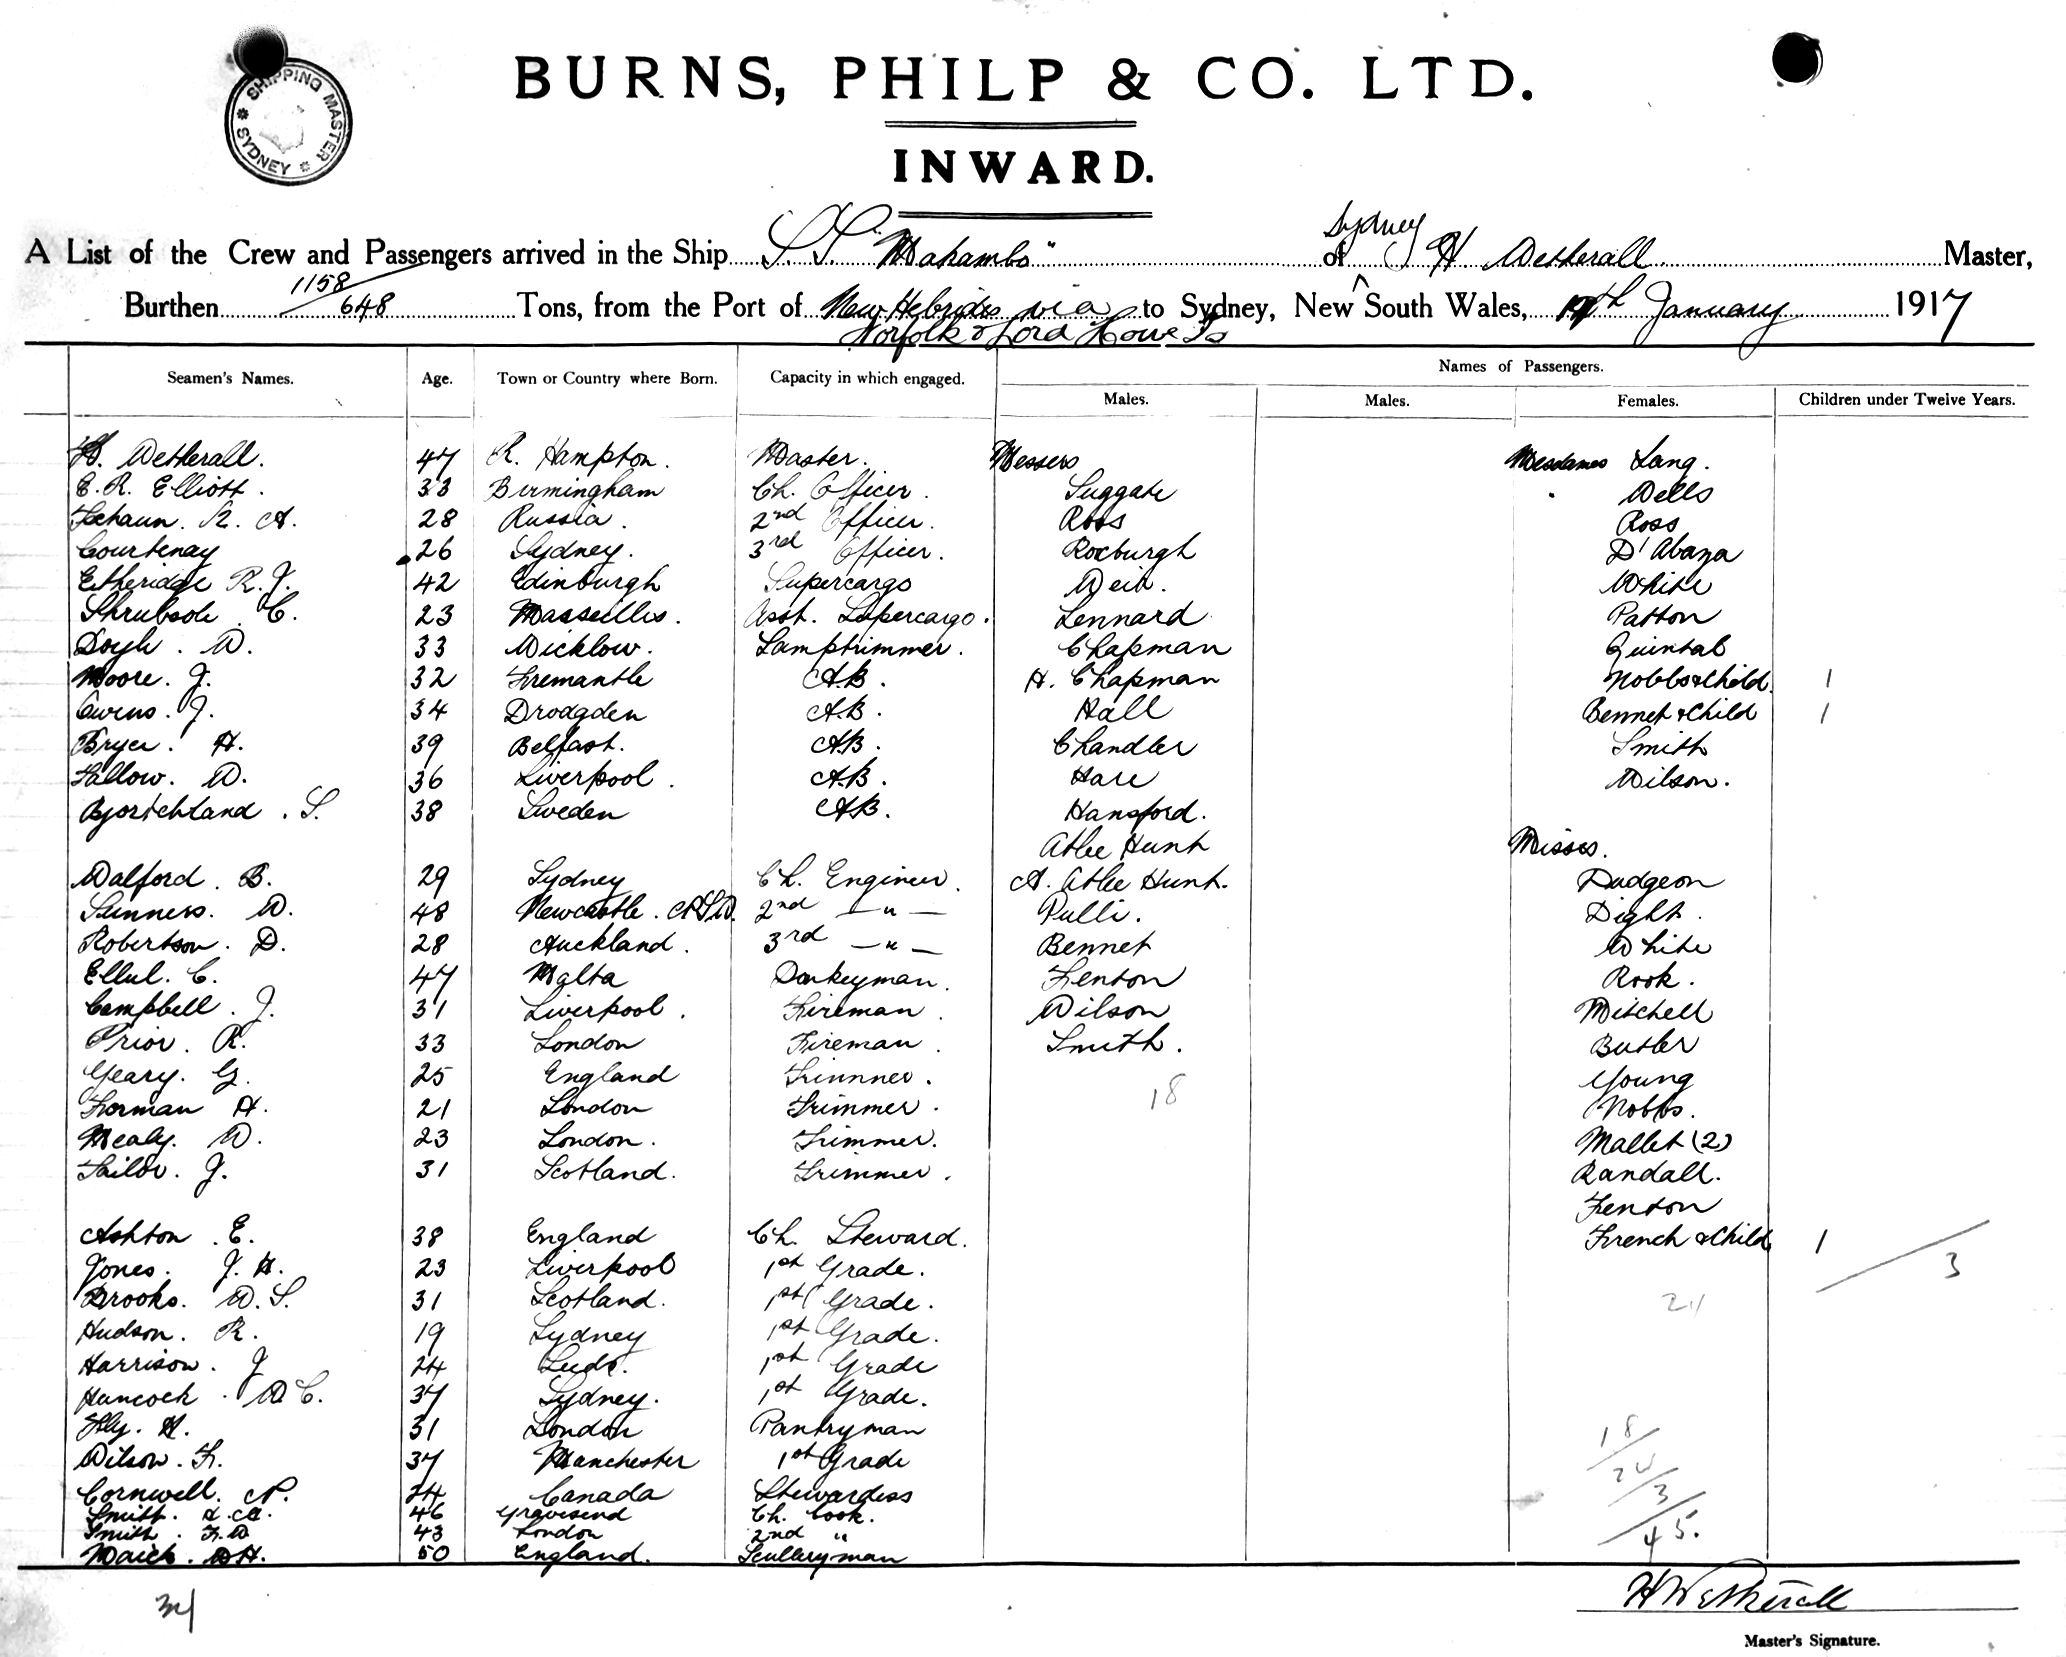 SHIPPING MASTER
* SYDNEY *
BURNS, PHILP & CO. LTD.
INWARD.
A List of the Crew and Passengers arrived in the Ship S.S. "Makambo" of Sydney H Wetherall Master,
Burthen 1158/648 Tons, from the Port of New Hebrides via Norfolk & Lord Howe Is to Sydney, New South Wales, January 1917
Seamen's Names. Age. Town or Country where Born. Capacity in which engaged. Names of Passengers.
Males. Males. Females. Children under Twelve Years.
H. Wetherall. 47 R. Hampton. Master. Messers Mesdames Lang.
E. R. Elliott. 33 Birmingham Ch. Officer. Suggate Wells
R. A. 28 Russia. 2nd Officer. Ross Ross
Courtenay 26 Sydney. 3rd Officer. Roxburgh D'Abaza
Etheridge R. J. 42 Edinburgh Supercargo Weir. White
Shrubsole C. 23 Masseilles. Asst. Supercargo. Lennard Patton
Doyle. W. 33 Wicklow. Lamptrimmer. Chapman Quintal
Moore. J. 32 Fremantle A.B. H. Chapman Nobbs & Child 1
Owens. J. 34 Drogden A.B. Hall Bennet & Child 1
Fryer. H. 39 Belfast. A.B. Chandler Smith
Fallow. W. 36 Liverpool. A.B. Hare Wilson.
S. 38 Sweden A.B. Hansford.
Atlee Hunt Misses.
Walford. B. 29 Sydney Ch. Engineer. A. Atlee Hunt. Dudgeon
W. 48 Newcastle. N.S.W. 2nd — " — Pulli. Dight.
Robertson. D. 28 Auckland. 3rd — " — Bennet White
Ellul. C. 47 Malta Donkeyman. Fenton Rook.
Campbell. J. 31 Liverpool. Fireman. Wilson Mitchell
Prior. R. 33 London Fireman. Smith. Butler
Geary. G. 25 England Trimmer. Young
18
Forman H. 21 London Trimmer. Nobbs.
Mealy. W. 23 London. Trimmer. Mallet (2)
Tailor. J. 31 Scotland. Trimmer. Randall.
Fenton
Ashton. E. 38 England Ch. Steward. French & Child 1
Jones. J. H. 23 Liverpool 1st Grade. 3
Brooks. W. S. 31 Scotland. 1st Grade. 24
Hudson. R. 19 Sydney 1st Grade.
Harrison. J 24 Leeds. 1st Grade
Hancock. W C. 37 Sydney. 1st Grade.
H. 31 London Pantryman
Wilson. F. 37 Manchester 1st Grade
18
24
3
45.
Cornwell. N. 24 Canada Stewardess
Smith. 46 Gravesend Ch. Cook.
Smith. F. W 43 London 2nd "
50 England. Sculleryman
34
H Wetherall
Master's Signature.